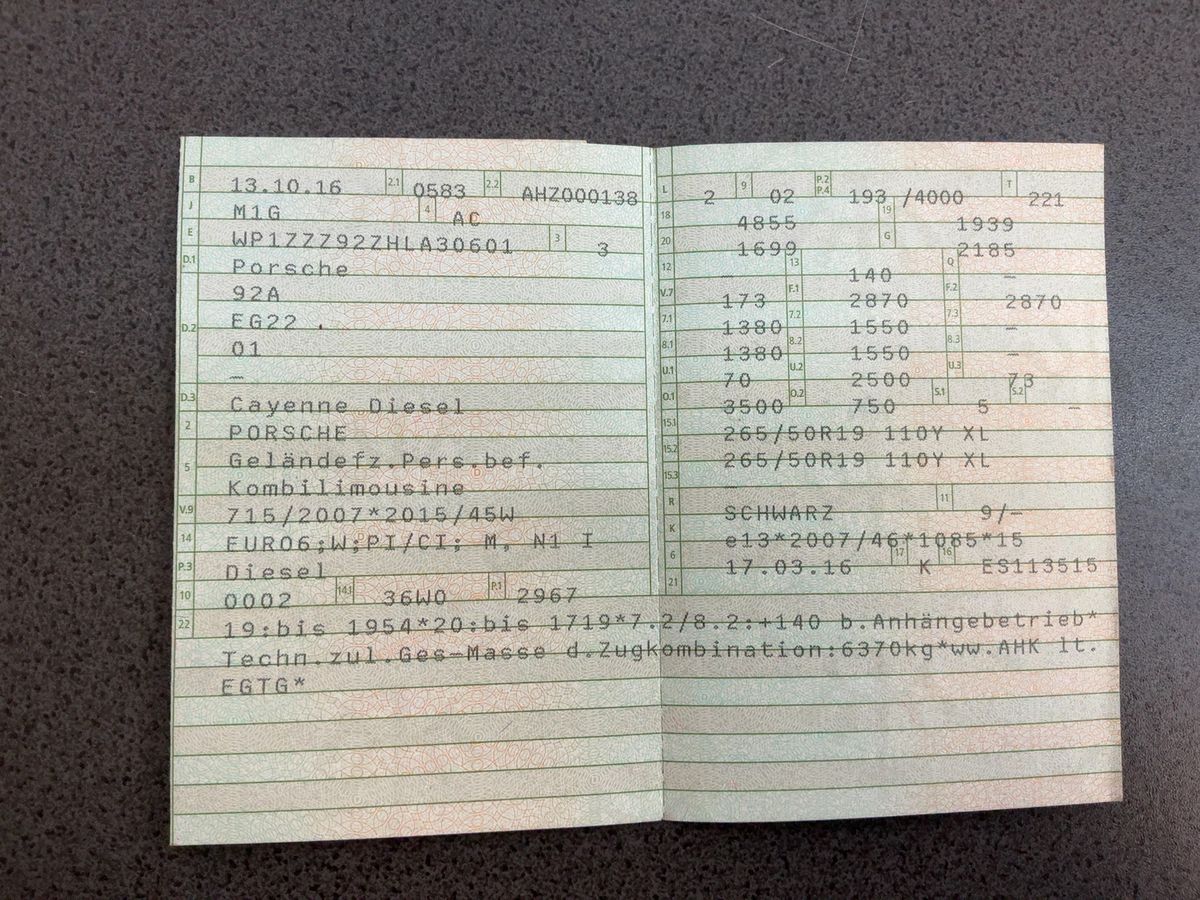 B 13.10.16 2.1 0583 2.2 AHZ000138
J M1G 4 AC
E WP1ZZZ92ZHLA30601 3 3
D.1 Porsche
92A
D.2 EG22
01
–
D.3 Cayenne Diesel
2 PORSCHE
5 Geländefz.Pers.bef.
Kombilimousine
V.9 715/2007*2015/45W
14 EURO6;W;PI/CI; M, N1 I
P.3 Diesel
10 0002 14.1 36W0 P.1 2967
L 2 9 02 P.2 P.4 193 /4000 T 221
18 4855 19 1939
20 1699 G 2185
12 – 13 140 Q –
V.7 173 F.1 2870 F.2 2870
7.1 1380 7.2 1550 7.3 –
8.1 1380 8.2 1550 8.3 –
U.1 70 U.2 2500 U.3 73
O.1 3500 O.2 750 S.1 5 S.2 –
15.1 265/50R19 110Y XL
15.2 265/50R19 110Y XL
15.3 –
R SCHWARZ 11 9/–
K e13*2007/46*1085*15
6 17.03.16 17 K 16 ES113515
21
22 19:bis 1954*20:bis 1719*7.2/8.2:+140 b.Anhängebetrieb*
Techn.zul.Ges–Masse d.Zugkombination:6370kg*ww.AHK lt.
EGTG*